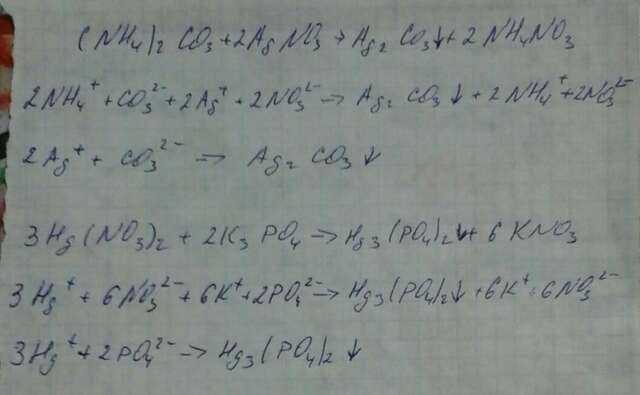 (NH4)2 CO3+2AgNO3→Ag2 CO3↓+2NH4NO3
2NH4⁺+CO3²⁻+2Ag⁺+2NO3²⁻→Ag2 CO3↓+2NH4⁺+2NO3²⁻
2Ag⁺+CO3²⁻→Ag2 CO3↓
3Hg(NO3)2+2K3PO4→Hg3(PO4)2↓+6KNO3
3Hg⁺+6NO3²⁻+6K⁺+2PO4²⁻→Hg3(PO4)2↓+6K⁺+6NO3²⁻
3Hg⁺+2PO4²⁻→Hg3(PO4)2↓